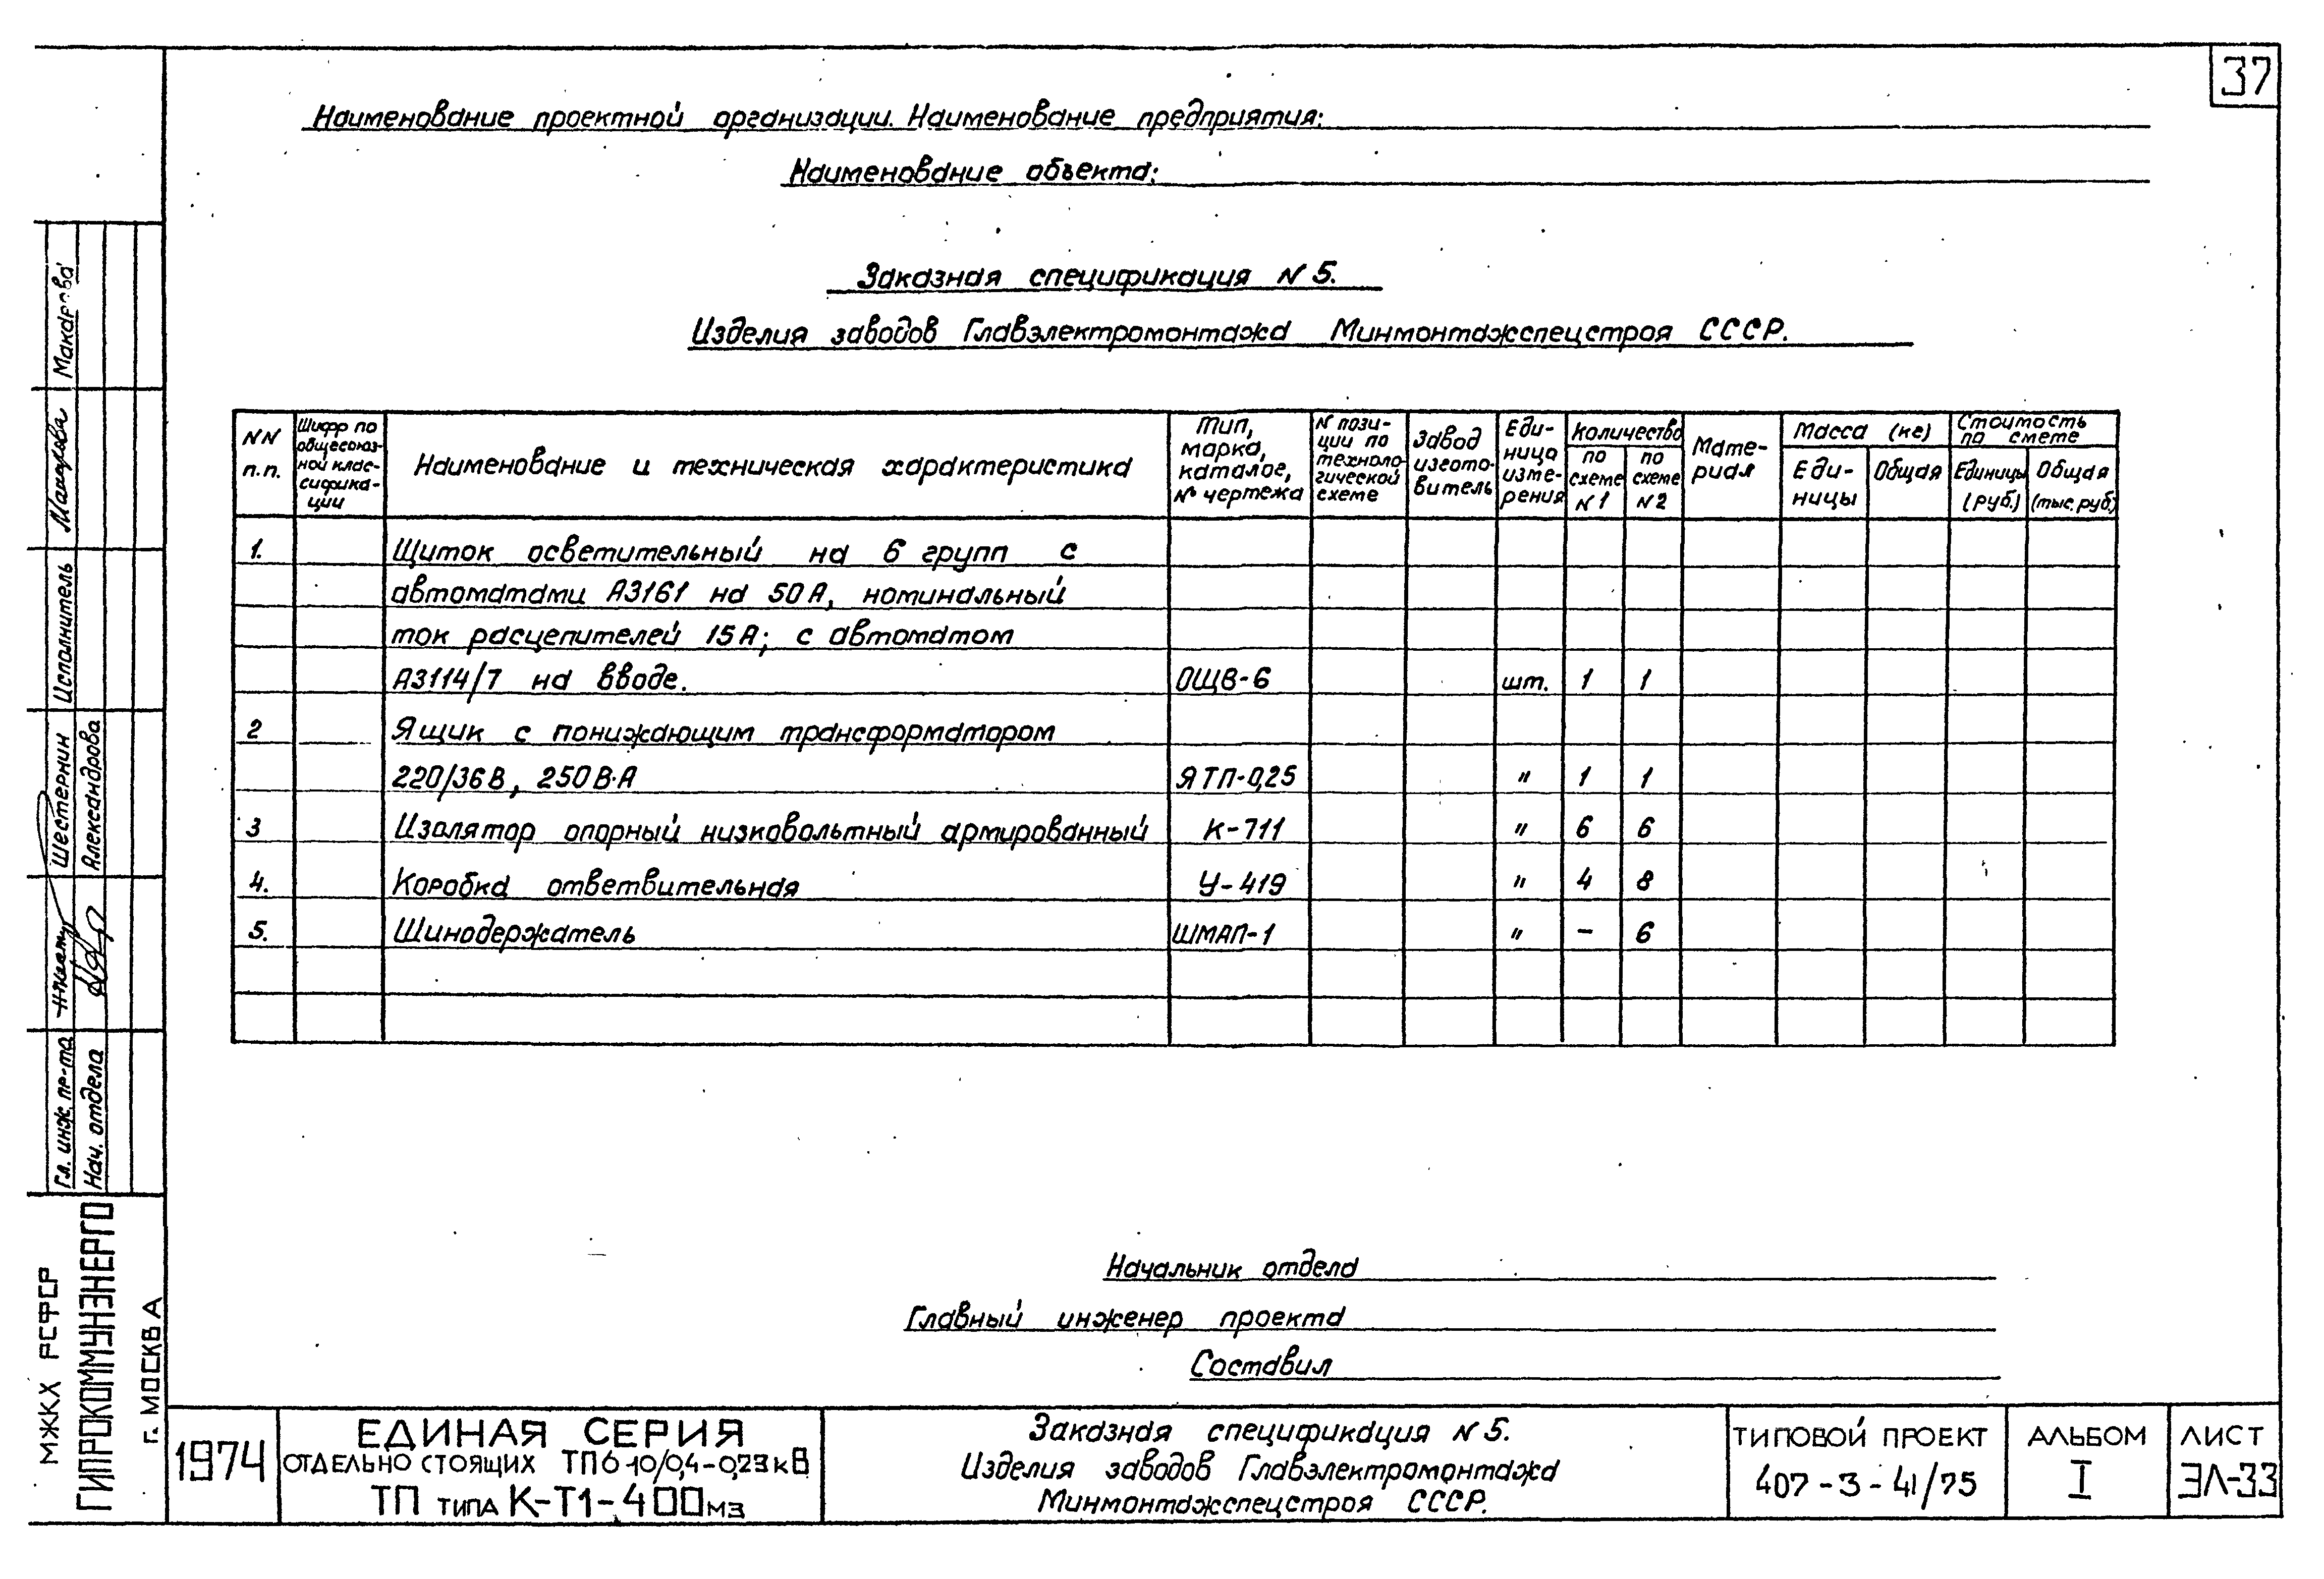 37
Наименование проектной организации. Наименование предприятия:
Наименование объекта:
Заказная спецификация N 5.
Изделия заводов Главэлектромонтажа Минмонтажспецстроя СССР.
NN п.п.
Шифр по общесоюз-ной клас-сифика-ции
Наименование и техническая характеристика
Тип, марка, каталог, № чертежа
N пози-ции по техноло-гической схеме
Завод изгото-витель
Еди-ница изме-рения
Количество
по схеме N 1
по схеме N 2
Мате-риал
Масса (кг)
Еди-ницы
Общая
Стоимость по смете
Единицы (руб.)
Общая (тыс. руб.)
1. Щиток осветительный на 6 групп с
автоматами А3161 на 50А, номинальный
ток расцепителей 15А; с автоматом
А3114/7 на вводе. ОЩВ-6 шт. 1 1
2 Ящик с понижающим трансформатором
220/36В, 250В·А ЯТП-0,25 " 1 1
3 Изолятор опорный низковольтный армированный К-711 " 6 6
4. Коробка ответвительная У-419 " 4 8
5. Шинодержатель ШМАП-1 " – 6
Начальник отдела
Главный инженер проекта
Составил
МЖКХ РСФСР
ГИПРОКОММУНЭНЕРГО
г. МОСКВА
Гл. инж. пр-та Шестернин Исполнитель Макарова
Нач. отдела Александрова
1974
ЕДИНАЯ СЕРИЯ
ОТДЕЛЬНО СТОЯЩИХ ТП 6-10/0,4-0,23 кВ
ТП ТИПА К-Т1-400 МЗ
Заказная спецификация N 5.
Изделия заводов Главэлектромонтажа
Минмонтажспецстроя СССР.
ТИПОВОЙ ПРОЕКТ
407-3-41/75
АЛЬБОМ
I
ЛИСТ
ЭЛ-33